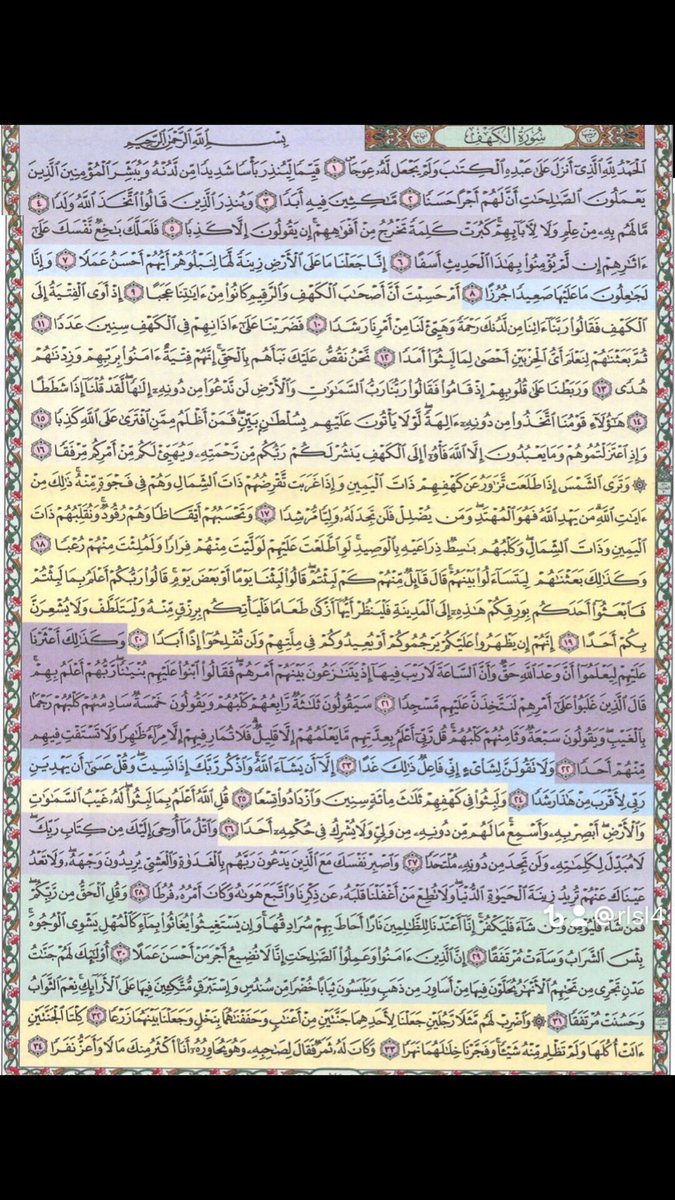 سُورَةُ الْكَهْفِ
بِسْمِ اللَّهِ الرَّحْمَٰنِ الرَّحِيمِ
الْحَمْدُ لِلَّهِ الَّذِي أَنزَلَ عَلَىٰ عَبْدِهِ الْكِتَابَ وَلَمْ يَجْعَل لَّهُ عِوَجًا ١ قَيِّمًا لِّيُنذِرَ بَأْسًا شَدِيدًا مِّن لَّدُنْهُ وَيُبَشِّرَ الْمُؤْمِنِينَ الَّذِينَ
يَعْمَلُونَ الصَّالِحَاتِ أَنَّ لَهُمْ أَجْرًا حَسَنًا ٢ مَّاكِثِينَ فِيهِ أَبَدًا ٣ وَيُنذِرَ الَّذِينَ قَالُوا اتَّخَذَ اللَّهُ وَلَدًا ٤
مَّا لَهُم بِهِ مِنْ عِلْمٍ وَلَا لِآبَائِهِمْ كَبُرَتْ كَلِمَةً تَخْرُجُ مِنْ أَفْوَاهِهِمْ إِن يَقُولُونَ إِلَّا كَذِبًا ٥ فَلَعَلَّكَ بَاخِعٌ نَّفْسَكَ عَلَىٰ
ءَاثَارِهِمْ إِن لَّمْ يُؤْمِنُوا بِهَٰذَا الْحَدِيثِ أَسَفًا ٦ إِنَّا جَعَلْنَا مَا عَلَى الْأَرْضِ زِينَةً لَّهَا لِنَبْلُوَهُمْ أَيُّهُمْ أَحْسَنُ عَمَلًا ٧ وَإِنَّا
لَجَاعِلُونَ مَا عَلَيْهَا صَعِيدًا جُرُزًا ٨ أَمْ حَسِبْتَ أَنَّ أَصْحَابَ الْكَهْفِ وَالرَّقِيمِ كَانُوا مِنْ ءَايَاتِنَا عَجَبًا ٩ إِذْ أَوَى الْفِتْيَةُ إِلَى
الْكَهْفِ فَقَالُوا رَبَّنَا ءَاتِنَا مِن لَّدُنكَ رَحْمَةً وَهَيِّئْ لَنَا مِنْ أَمْرِنَا رَشَدًا ١٠ فَضَرَبْنَا عَلَىٰ ءَاذَانِهِمْ فِي الْكَهْفِ سِنِينَ عَدَدًا ١١
ثُمَّ بَعَثْنَاهُمْ لِنَعْلَمَ أَيُّ الْحِزْبَيْنِ أَحْصَىٰ لِمَا لَبِثُوا أَمَدًا ١٢ نَّحْنُ نَقُصُّ عَلَيْكَ نَبَأَهُم بِالْحَقِّ إِنَّهُمْ فِتْيَةٌ ءَامَنُوا بِرَبِّهِمْ وَزِدْنَاهُمْ
هُدًى ١٣ وَرَبَطْنَا عَلَىٰ قُلُوبِهِمْ إِذْ قَامُوا فَقَالُوا رَبُّنَا رَبُّ السَّمَاوَاتِ وَالْأَرْضِ لَن نَّدْعُوَا مِن دُونِهِ إِلَٰهًا لَّقَدْ قُلْنَا إِذًا شَطَطًا
١٤ هَٰؤُلَاءِ قَوْمُنَا اتَّخَذُوا مِن دُونِهِ ءَالِهَةً لَّوْلَا يَأْتُونَ عَلَيْهِم بِسُلْطَانٍ بَيِّنٍ فَمَنْ أَظْلَمُ مِمَّنِ افْتَرَىٰ عَلَى اللَّهِ كَذِبًا ١٥
وَإِذِ اعْتَزَلْتُمُوهُمْ وَمَا يَعْبُدُونَ إِلَّا اللَّهَ فَأْوُوا إِلَى الْكَهْفِ يَنشُرْ لَكُمْ رَبُّكُم مِّن رَّحْمَتِهِ وَيُهَيِّئْ لَكُم مِّنْ أَمْرِكُم مِّرْفَقًا ١٦
۞ وَتَرَى الشَّمْسَ إِذَا طَلَعَت تَّزَاوَرُ عَن كَهْفِهِمْ ذَاتَ الْيَمِينِ وَإِذَا غَرَبَت تَّقْرِضُهُمْ ذَاتَ الشِّمَالِ وَهُمْ فِي فَجْوَةٍ مِّنْهُ ذَٰلِكَ مِنْ
ءَايَاتِ اللَّهِ مَن يَهْدِ اللَّهُ فَهُوَ الْمُهْتَدِ وَمَن يُضْلِلْ فَلَن تَجِدَ لَهُ وَلِيًّا مُّرْشِدًا ١٧ وَتَحْسَبُهُمْ أَيْقَاظًا وَهُمْ رُقُودٌ وَنُقَلِّبُهُمْ ذَاتَ
الْيَمِينِ وَذَاتَ الشِّمَالِ وَكَلْبُهُم بَاسِطٌ ذِرَاعَيْهِ بِالْوَصِيدِ لَوِ اطَّلَعْتَ عَلَيْهِمْ لَوَلَّيْتَ مِنْهُمْ فِرَارًا وَلَمُلِئْتَ مِنْهُمْ رُعْبًا ١٨
وَكَذَٰلِكَ بَعَثْنَاهُمْ لِيَتَسَاءَلُوا بَيْنَهُمْ قَالَ قَائِلٌ مِّنْهُمْ كَمْ لَبِثْتُمْ قَالُوا لَبِثْنَا يَوْمًا أَوْ بَعْضَ يَوْمٍ قَالُوا رَبُّكُمْ أَعْلَمُ بِمَا لَبِثْتُمْ
فَابْعَثُوا أَحَدَكُم بِوَرِقِكُمْ هَٰذِهِ إِلَى الْمَدِينَةِ فَلْيَنظُرْ أَيُّهَا أَزْكَىٰ طَعَامًا فَلْيَأْتِكُم بِرِزْقٍ مِّنْهُ وَلْيَتَلَطَّفْ وَلَا يُشْعِرَنَّ
بِكُمْ أَحَدًا ١٩ إِنَّهُمْ إِن يَظْهَرُوا عَلَيْكُمْ يَرْجُمُوكُمْ أَوْ يُعِيدُوكُمْ فِي مِلَّتِهِمْ وَلَن تُفْلِحُوا إِذًا أَبَدًا ٢٠ وَكَذَٰلِكَ أَعْثَرْنَا
عَلَيْهِمْ لِيَعْلَمُوا أَنَّ وَعْدَ اللَّهِ حَقٌّ وَأَنَّ السَّاعَةَ لَا رَيْبَ فِيهَا إِذْ يَتَنَازَعُونَ بَيْنَهُمْ أَمْرَهُمْ فَقَالُوا ابْنُوا عَلَيْهِم بُنْيَانًا رَّبُّهُمْ أَعْلَمُ بِهِمْ
قَالَ الَّذِينَ غَلَبُوا عَلَىٰ أَمْرِهِمْ لَنَتَّخِذَنَّ عَلَيْهِم مَّسْجِدًا ٢١ سَيَقُولُونَ ثَلَاثَةٌ رَّابِعُهُمْ كَلْبُهُمْ وَيَقُولُونَ خَمْسَةٌ سَادِسُهُمْ كَلْبُهُمْ رَجْمًا
بِالْغَيْبِ وَيَقُولُونَ سَبْعَةٌ وَثَامِنُهُمْ كَلْبُهُمْ قُل رَّبِّي أَعْلَمُ بِعِدَّتِهِم مَّا يَعْلَمُهُمْ إِلَّا قَلِيلٌ فَلَا تُمَارِ فِيهِمْ إِلَّا مِرَاءً ظَاهِرًا وَلَا تَسْتَفْتِ فِيهِم
مِّنْهُمْ أَحَدًا ٢٢ وَلَا تَقُولَنَّ لِشَايْءٍ إِنِّي فَاعِلٌ ذَٰلِكَ غَدًا ٢٣ إِلَّا أَن يَشَاءَ اللَّهُ وَاذْكُر رَّبَّكَ إِذَا نَسِيتَ وَقُلْ عَسَىٰ أَن يَهْدِيَنِ
رَبِّي لِأَقْرَبَ مِنْ هَٰذَا رَشَدًا ٢٤ وَلَبِثُوا فِي كَهْفِهِمْ ثَلَاثَ مِائَةٍ سِنِينَ وَازْدَادُوا تِسْعًا ٢٥ قُلِ اللَّهُ أَعْلَمُ بِمَا لَبِثُوا لَهُ غَيْبُ السَّمَاوَاتِ
وَالْأَرْضِ أَبْصِرْ بِهِ وَأَسْمِعْ مَا لَهُم مِّن دُونِهِ مِن وَلِيٍّ وَلَا يُشْرِكُ فِي حُكْمِهِ أَحَدًا ٢٦ وَاتْلُ مَا أُوحِيَ إِلَيْكَ مِن كِتَابِ رَبِّكَ
لَا مُبَدِّلَ لِكَلِمَاتِهِ وَلَن تَجِدَ مِن دُونِهِ مُلْتَحَدًا ٢٧ وَاصْبِرْ نَفْسَكَ مَعَ الَّذِينَ يَدْعُونَ رَبَّهُم بِالْغَدَاةِ وَالْعَشِيِّ يُرِيدُونَ وَجْهَهُ وَلَا تَعْدُ
عَيْنَاكَ عَنْهُمْ تُرِيدُ زِينَةَ الْحَيَاةِ الدُّنْيَا وَلَا تُطِعْ مَنْ أَغْفَلْنَا قَلْبَهُ عَن ذِكْرِنَا وَاتَّبَعَ هَوَاهُ وَكَانَ أَمْرُهُ فُرُطًا ٢٨ وَقُلِ الْحَقُّ مِن رَّبِّكُمْ
@rlsl4
فَمَن شَاءَ فَلْيُؤْمِن وَمَن شَاءَ فَلْيَكْفُرْ إِنَّا أَعْتَدْنَا لِلظَّالِمِينَ نَارًا أَحَاطَ بِهِمْ سُرَادِقُهَا وَإِن يَسْتَغِيثُوا يُغَاثُوا بِمَاءٍ كَالْمُهْلِ يَشْوِي الْوُجُوهَ
بِئْسَ الشَّرَابُ وَسَاءَتْ مُرْتَفَقًا ٢٩ إِنَّ الَّذِينَ ءَامَنُوا وَعَمِلُوا الصَّالِحَاتِ إِنَّا لَا نُضِيعُ أَجْرَ مَنْ أَحْسَنَ عَمَلًا ٣٠ أُولَٰئِكَ لَهُمْ جَنَّاتُ
عَدْنٍ تَجْرِي مِن تَحْتِهِمُ الْأَنْهَارُ يُحَلَّوْنَ فِيهَا مِنْ أَسَاوِرَ مِن ذَهَبٍ وَيَلْبَسُونَ ثِيَابًا خُضْرًا مِّن سُندُسٍ وَإِسْتَبْرَقٍ مُّتَّكِئِينَ فِيهَا عَلَى الْأَرَائِكِ نِعْمَ الثَّوَابُ
وَحَسُنَتْ مُرْتَفَقًا ٣١ ۞ وَاضْرِبْ لَهُم مَّثَلًا رَّجُلَيْنِ جَعَلْنَا لِأَحَدِهِمَا جَنَّتَيْنِ مِنْ أَعْنَابٍ وَحَفَفْنَاهُمَا بِنَخْلٍ وَجَعَلْنَا بَيْنَهُمَا زَرْعًا ٣٢ كِلْتَا الْجَنَّتَيْنِ
ءَاتَتْ أُكُلَهَا وَلَمْ تَظْلِم مِّنْهُ شَيْئًا وَفَجَّرْنَا خِلَالَهُمَا نَهَرًا ٣٣ وَكَانَ لَهُ ثَمَرٌ فَقَالَ لِصَاحِبِهِ وَهُوَ يُحَاوِرُهُ أَنَا أَكْثَرُ مِنكَ مَالًا وَأَعَزُّ نَفَرًا ٣٤